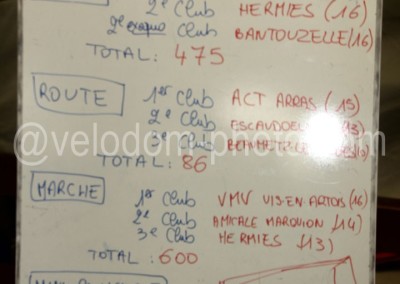 2e Club HERMIES (16)
2e exaequo Club BANTOUZELLE (16)
TOTAL: 475
ROUTE 1er Club ACT ARRAS (
2e Club
3e Club
TOTAL: 86
@velodom
MARCHE
1er Club VMV VIS-EN-ARTOIS (16)
2e Club AMICALE MARQUION (14)
3e Club HERMIES (13)
TOTAL: 600